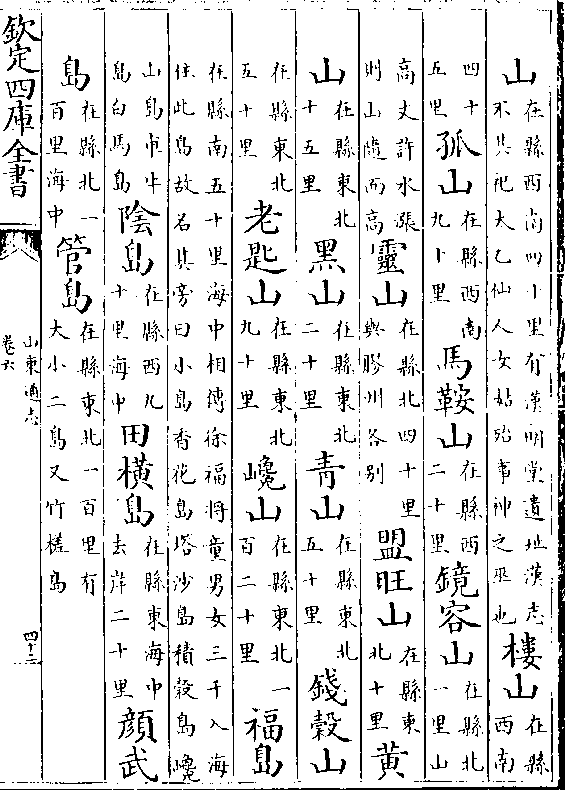 山在縣西南四十里有漢明堂遺址漢志不其祀太乙仙人女姑殆事神之巫也樓山在縣西南
四十五里孤山在縣西南九十里馬鞍山在縣西二十里鏡容山在縣北一里山
高丈許水漲則山隨而高靈山在縣北四十里與膠州各别盟旺山在縣東北十里黄
山在縣東北十五里黑山在縣東北二十里青山在縣東北五十里錢穀山
在縣東北五十里老匙山在縣東北九十里巉山在縣東北一百二十里福島
在縣南五十里海中相傳徐福將童男女三千入海住此島故名其旁曰小島香花島塔沙島積穀島巉
山島車牛島白馬島陰島在縣西九十里海中田橫島在縣東海中去岸二十里顔武
島在縣北一百里海中管島在縣東北一百里有大小二島又竹槎島
欽定四庫全書
山東通志
卷六
四十三